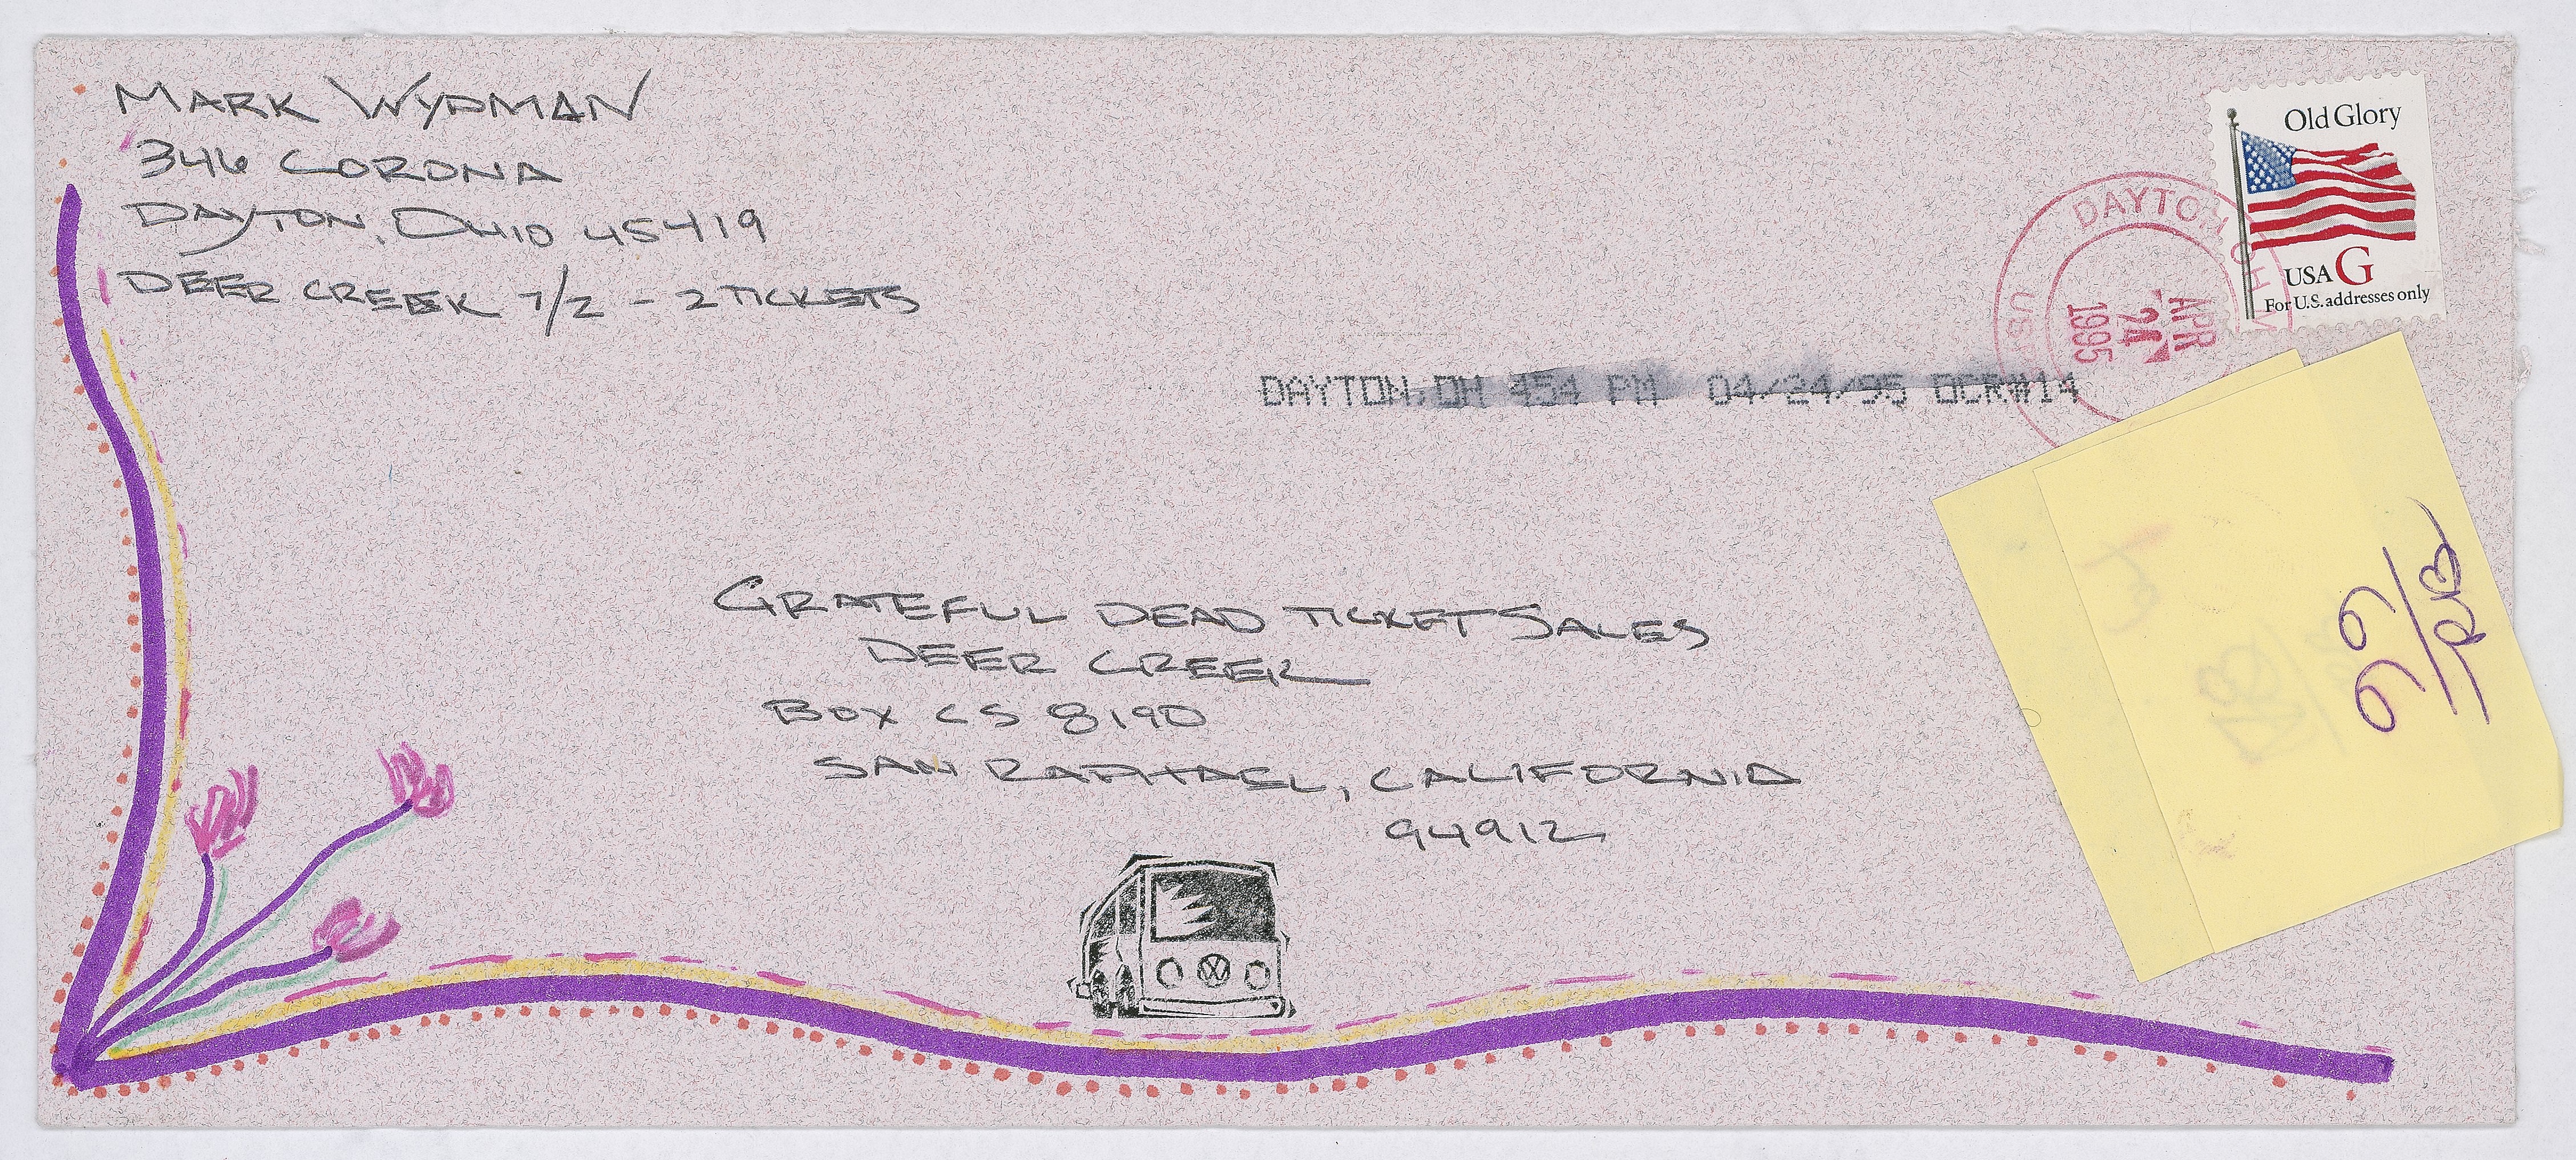 MARK WYDMAN
346 CORONA
DAYTON, OHIO 45419
DEER CREEK 7/2 - 2 TICKETS
Old Glory
USA G
For U.S. addresses only
DAYTON OH
APR
24
1995
DAYTON, OH 454 PM 04/24/95 OCR#14
GRATEFUL DEAD TICKET SALES
DEER CREEK
BOX CS 8190
SAN RAPHAEL, CALIFORNIA
94912